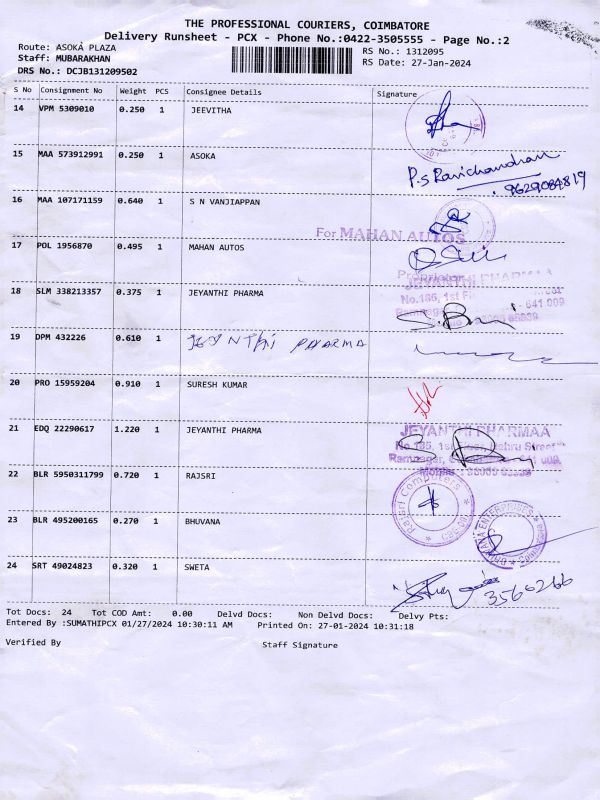 THE PROFESSIONAL COURIERS, COIMBATORE
Delivery Runsheet - PCX - Phone No.:0422-3505555 - Page No.:2
Route: ASOKA PLAZA
RS No.: 1312095
Staff: MUBARAKHAN
RS Date: 27-Jan-2024
DRS No.: DCJB131209502
S No Consignment No Weight PCS Consignee Details Signature
14 VPM 5309010 0.250 1 JEEVITHA
15 MAA 573912991 0.250 1 ASOKA
P.S Ravichandran
9629084819
16 MAA 107171159 0.640 1 S N VANJIAPPAN
For MAHAN AUTOS
17 POL 1956870 0.495 1 MAHAN AUTOS
Proprietor
JEYANTHI PHARMAA
18 SLM 338213357 0.375 1 JEYANTHI PHARMA
No.186, 1st
641 009
19 DPM 432226 0.610 1 JEYNTHi PHARMA
20 PRO 15959204 0.910 1 SURESH KUMAR
21 EDQ 22290617 1.220 1 JEYANTHI PHARMA
JEYANTHI PHARMAA
Nehru Street
Ramnagar,
Mobile :
22 BLR 5950311799 0.720 1 RAJSRI
Rajsri Computers
23 BLR 495200165 0.270 1 BHUVANA
BHUVANA ENTERPRISES
24 SRT 49024823 0.320 1 SWETA
3566266
Tot Docs: 24 Tot COD Amt: 0.00 Delvd Docs: Non Delvd Docs: Delvy Pts:
Entered By :SUMATHIPCX 01/27/2024 10:30:11 AM Printed On: 27-01-2024 10:31:18
Verified By Staff Signature